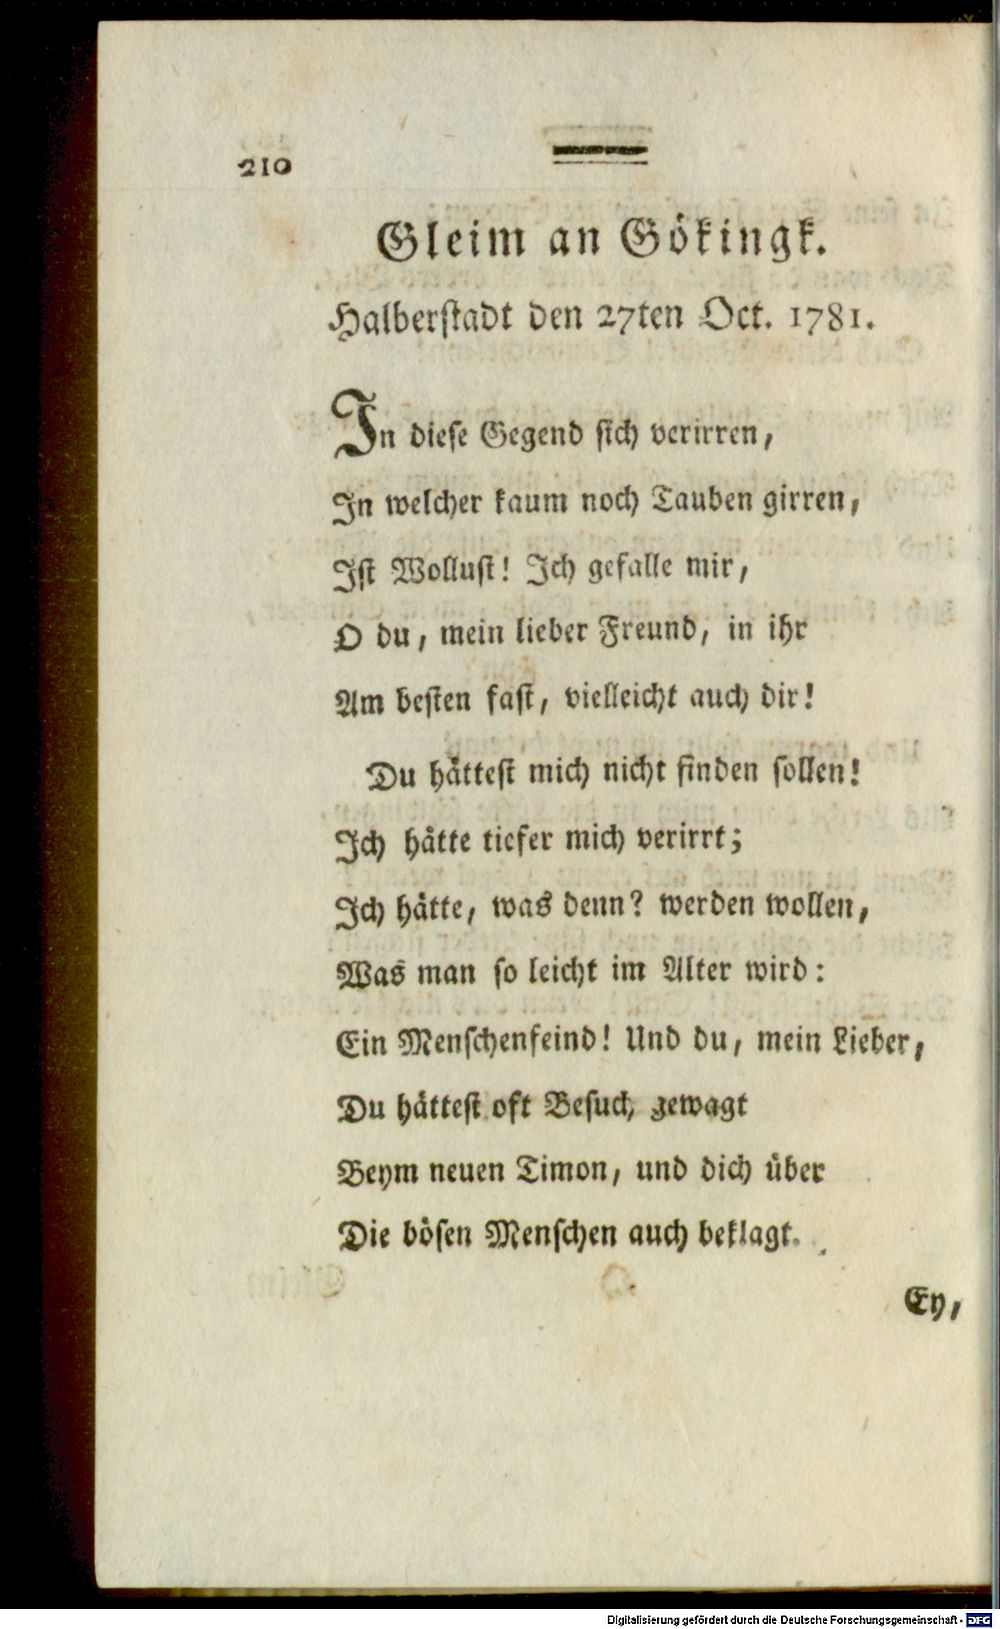 210
Gleim an Gökingk.
Halberstadt den 27ten Oct. 1781.
In diese Gegend sich verirren,
In welcher kaum noch Tauben girren,
Ist Wollust! Ich gefalle mir,
O du, mein lieber Freund, in ihr
Am besten fast, vielleicht auch dir!
Du hättest mich nicht finden sollen!
Ich hätte tiefer mich verirrt;
Ich hätte, was denn? werden wollen,
Was man so leicht im Alter wird:
Ein Menschenfeind! Und du, mein Lieber,
Du hättest oft Besuch gewagt
Beym neuen Timon, und dich über
Die bösen Menschen auch beklagt.
Ey,
Digitalisierung gefördert durch die Deutsche Forschungsgemeinschaft - DFG